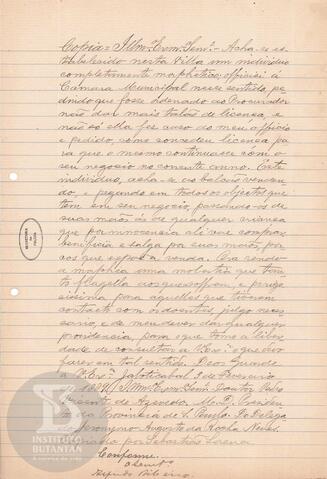 Copia = Illmº Exmº Senrº - Acha-se es-
tabelecido nesta Villa um individuo
completamente morphetico; officiei á
Camara Municipal nesse sentido, pe-
dindo que fose ordenado ao Procurador
não dar mais talão de licensa, e
não só ella fez caso do meu officio
e pedido, como concedeu licensa pa-
ra que o mesmo continuasse com o
seu negocio no corrente anno. Este
individuo, acha-se ao balcão venden-
do, e pegando em todos os objectos que
tem em seu negocio, passando-os de
suas mãos ás de qualquer criansa
que por innocencia ali vae comprar,
beneficia e salga por suas mãos, por-
cos que expoe a venda. Ora sendo
a morphéa uma molestia que tan-
to flagella aos que soffrem, e perigo-
sissima para aquelles que tiverem
contacto com os doentes, julgo neces-
sario, e de meu dever dar qualquer
providencia, para o que tomo a liber-
dade de consultar a V. Exª o que devo
fazer em tal sentido. Deos Guarde
a V. Exª Jaboticabal 3 de Fevereiro
de 1889. Illmº Exmº Senr. Doutor Pedro
Vicente de Azevedo, M. D. Presiden-
te da Provincia de S. Paulo. O Delega-
do Jeronymo Augusto da Rocha Neves.
por Sebastião Lorena
Conforme.
Alfredo Ribeiro.
INSTITUTO
BUTANTAN
A serviço da vida